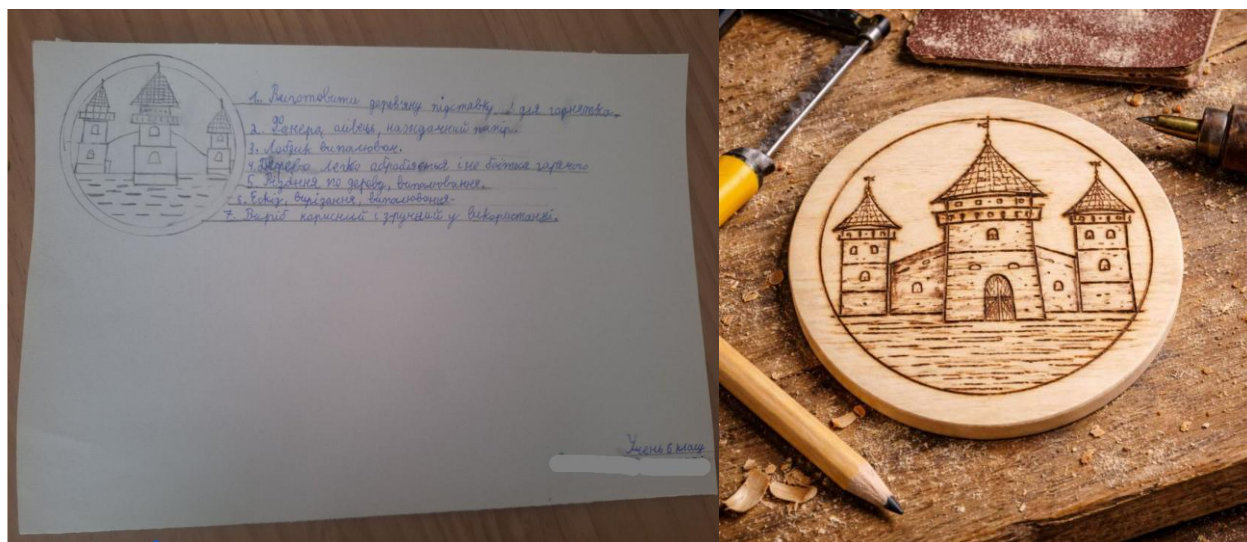 1. Виготовити дерев'яну підставку для горнятка.
2. Фанера, олівець, наждачний папір.
3. Лобзик випалювач.
4. Дерево легко обробляється і не боїться гарячого
5. Різання по дереву, випалювання.
6. Ескіз, вирізання, випалювання.
7. Виріб корисний і зручний у використанні.
Учень 6 класу